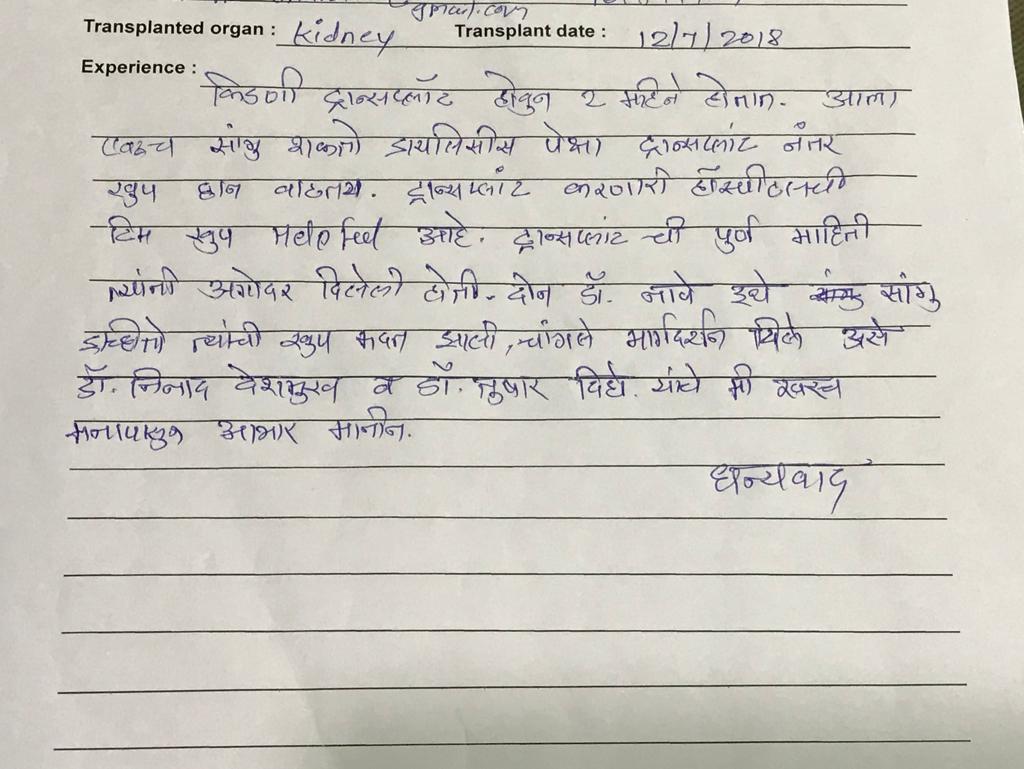 gmail.com
Transplanted organ : Kidney Transplant date : 12/7/2018
Experience :
किडणी ट्रान्सप्लॉट होवुन २ महिने होतात. आता
एवढच सांगु शकतो डायलिसीस पेक्षा ट्रान्सप्लांट नंतर
खुप छान वाटतय. ट्रान्सप्लांट करणारी हॉस्पीटलची
टिम खुप Helpfeel आहे. ट्रान्सप्लांट ची पुर्ण माहिती
त्यांनी अगोदर दिलेली होती. दोन डॉ. नावे इथे सांगु
इच्छितो त्यांची खुप मदत झाली, चांगले मार्गदर्शन दिले असे
डॉ. निनाद देशमुख व डॉ. तुषार दिघे. यांचे मी
मनापासुन आभार मानीन.
धन्यवाद